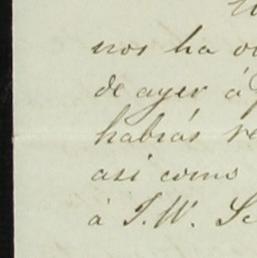 nos ha
de ayer á
habrás
asi como
á J. W.